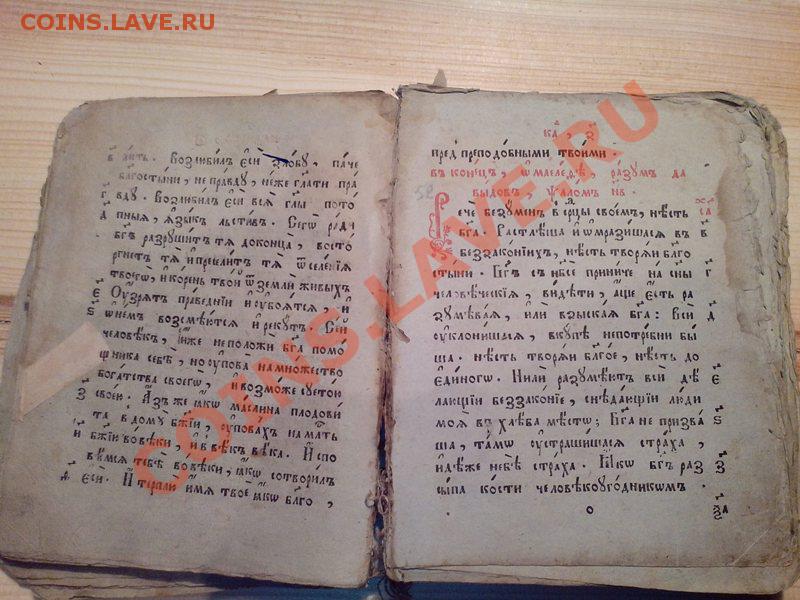 COINS.LAVE.RU
возлюбилъ є҆сѝ ѕло́бꙋ , па́че
благосты́ни , непра́вдꙋ , не́же гл҃ати пра́
вдꙋ . Возлюби́лъ є҆сѝ всѧ̑ гл҃ы пото́
пныѧ , ꙗ҆зы́къ льсти́въ . Сегѡ̀ ра́ди
бг҃ъ разрꙋши́тъ тѧ̀ доконца̀ , восто́
ргнетъ тѧ̀ и҆ пресели́тъ тѧ̀ ѿ селе́нїѧ
твоегѡ̀ , и҆ ко́рень тво́й ѿ землѝ живы́хъ
є҃ Оу҆́зрѧтъ пра́веднїи и҆ оу҆боѧ́тсѧ , и҆
ѕ҃ ѡ҆ не́мъ возсмѣю́тсѧ и҆ рекꙋ́тъ . Се́й
человѣ́къ , и҆́же не положѝ бг҃а помо́
щника себѣ̀ , но оу҆пова̀ на мно́жество
бога́тства своегѡ̀ , и҆ возмо́же сꙋето́ю
з҃ свое́ю . А҆́зъ же ꙗ҆́кѡ ма́слина плодови́
та въ домꙋ̀ бж҃їи , оу҆пова́хъ на млⷭ҇ть
и҃ бж҃їю во вѣ́ки , и҆ въ вѣ́къ вѣ́ка . И҆спо
вѣ́мсѧ тебѣ̀ во вѣ́ки , ꙗ҆́кѡ сотвори́лъ
є҆сѝ . И҆ терплю̀ и҆́мѧ твоѐ ꙗ҆́кѡ бл҃го ,
ка , з҃
пред̾ преподо́бными твои́ми .
въ коне́цъ , ѡ҆ маеле́ѳѣ , ра́зꙋма да
вы́дова , ѱало́мъ н҃в .
52
Речѐ безꙋ́менъ в срⷣцы свое́мъ , нѣ́сть
бг҃а . Растлѣ́ша и҆ ѡ҆мрази́шасѧ въ в҃
беззако́нїихъ , нѣ́сть творѧ́и бл҃го
сты́ни . Бг҃ъ съ нб҃се прини́че на сы́ны г҃
человѣ́ческїѧ , ви́дѣти , а҆́ще є҆́сть ра
зꙋмѣ́ваѧ , и҆лѝ взыска́ѧ бг҃а : Всѝ д҃
оу҆клони́шасѧ , вкꙋ́пѣ непотре́бни бы́
ша . нѣ́сть творѧ́и бл҃го́е , нѣ́сть до
є҆ди́нагѡ . Ни ли̑ разꙋмѣ́ютъ всѝ дѣ́ є҃
лающїи беззако́нїе , снѣда́ющїи лю́ди
моѧ̑ въ хлѣ́ба мѣ́стѡ ; Бг҃а не призва́ ѕ҃
ша , та́мѡ оу҆страши́шасѧ стра́ха ,
и҆дѣ́же не бѣ̀ стра́ха . Ꙗ҆́кѡ бг҃ъ раз з҃
сы́па ко́сти человѣкоꙋго́дникѡмъ .
COINS.LAVE.RU